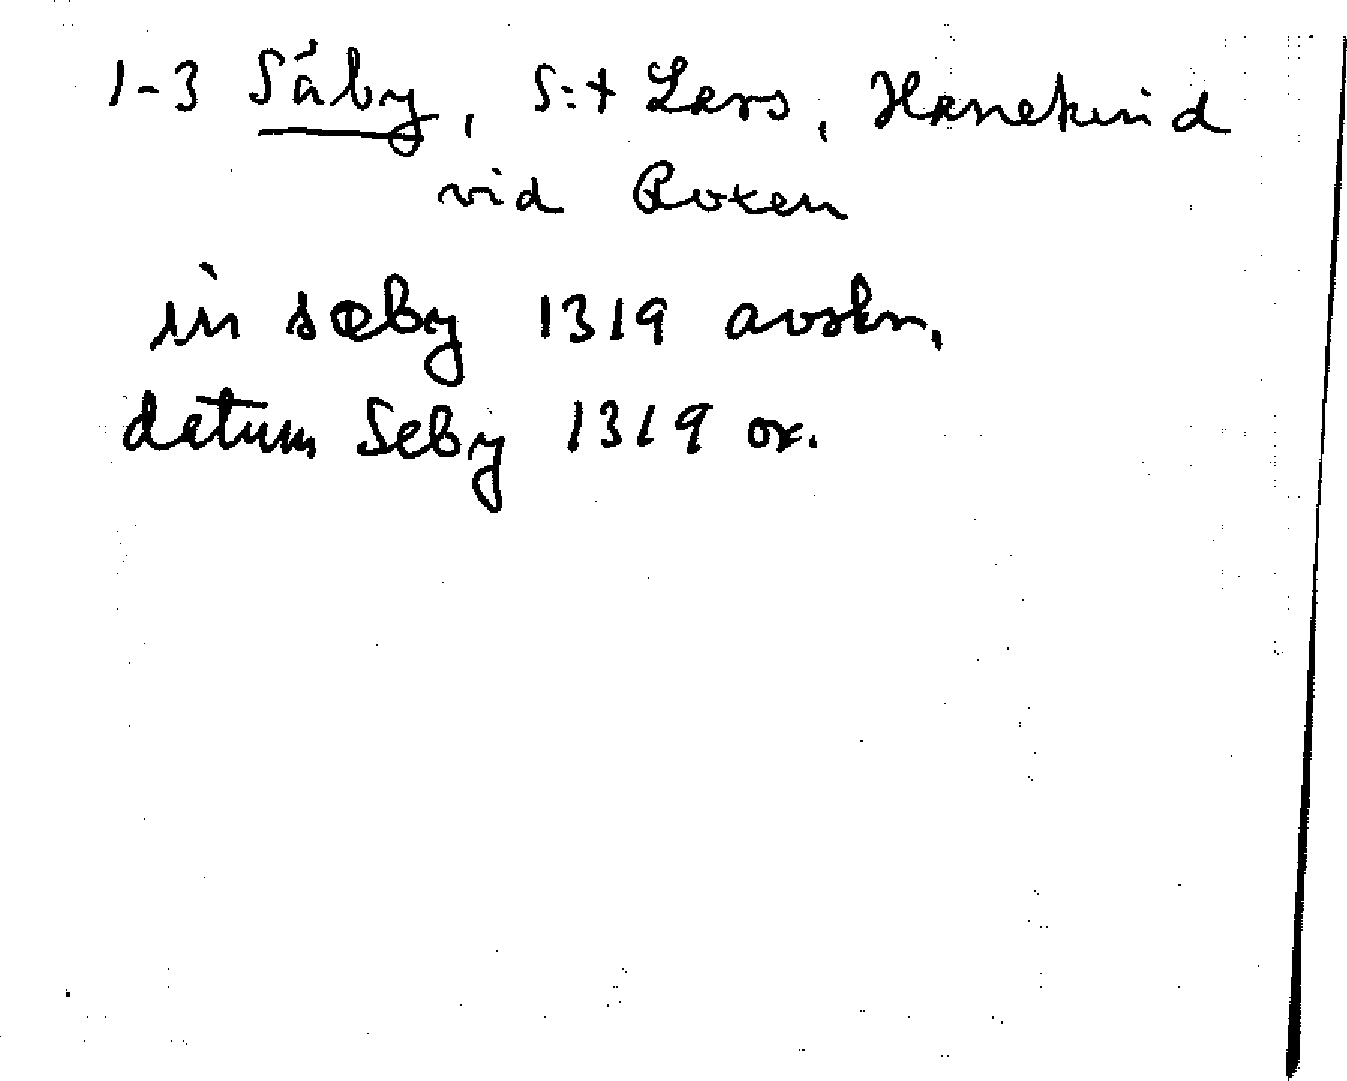 1-3 Säby, S:t Lars, Hanekind
vid Roxen
in sæby 1319 avskr.
datum Seby 1319 or.